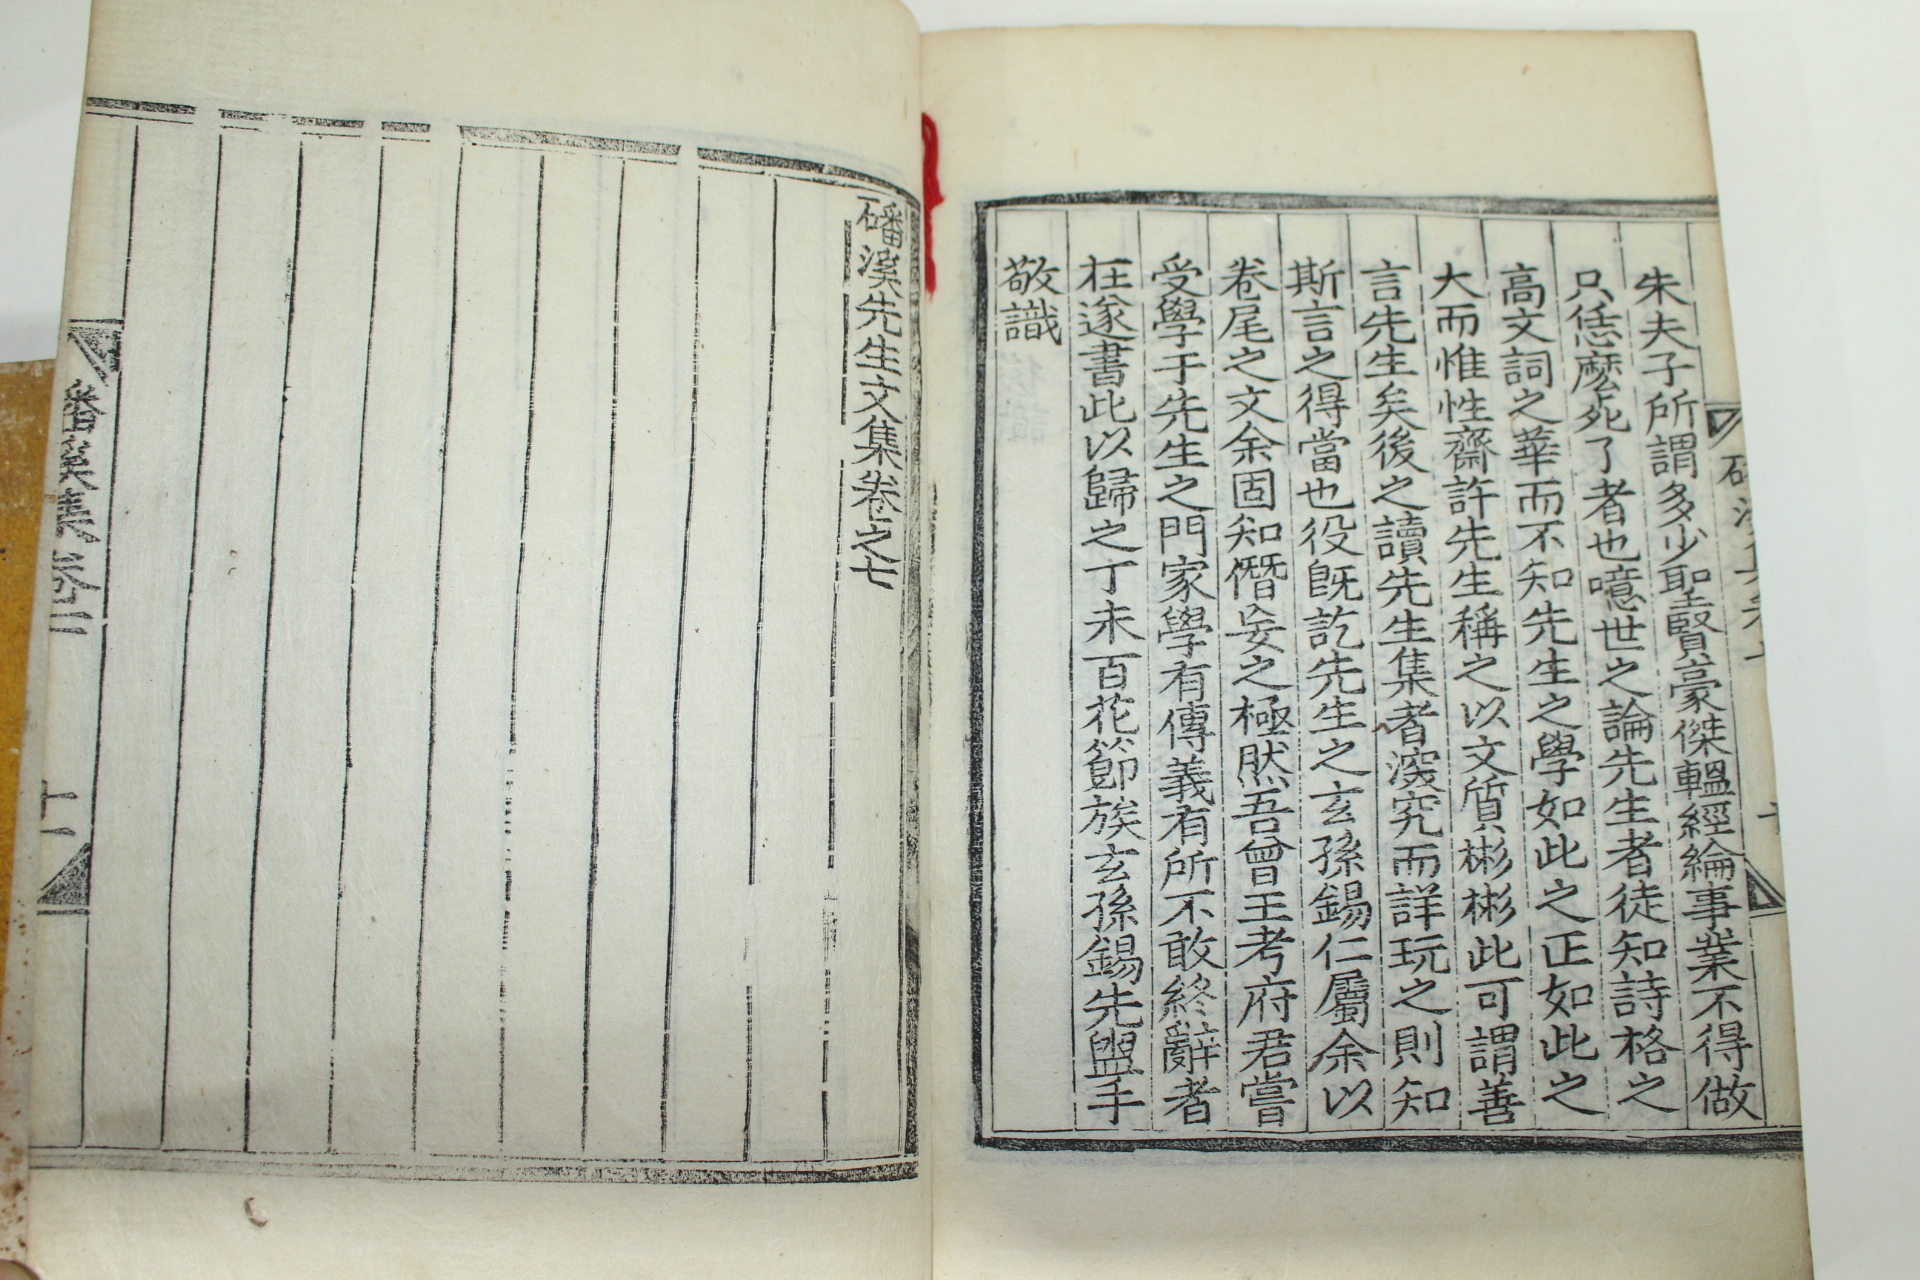 朱夫子所謂多少聖賢豪傑韞經綸事業不得做
只恁麽死了者也噫世之論先生者徒知詩格之
高文詞之華而不知先生之學如此之正如此之
大而惟性齋許先生稱之以文質彬彬此可謂善
言先生矣後之讀先生集者深究而詳玩之則知
斯言之得當也役旣訖先生之玄孫錫仁屬余以
卷尾之文余固知僭妄之極然吾曾王考府君嘗
受學于先生之門家學有傳義有所不敢終辭者
在遂書此以歸之丁未百花節族玄孫錫先盥手
敬識
磻溪先生文集卷之七
磻溪集卷二
十一